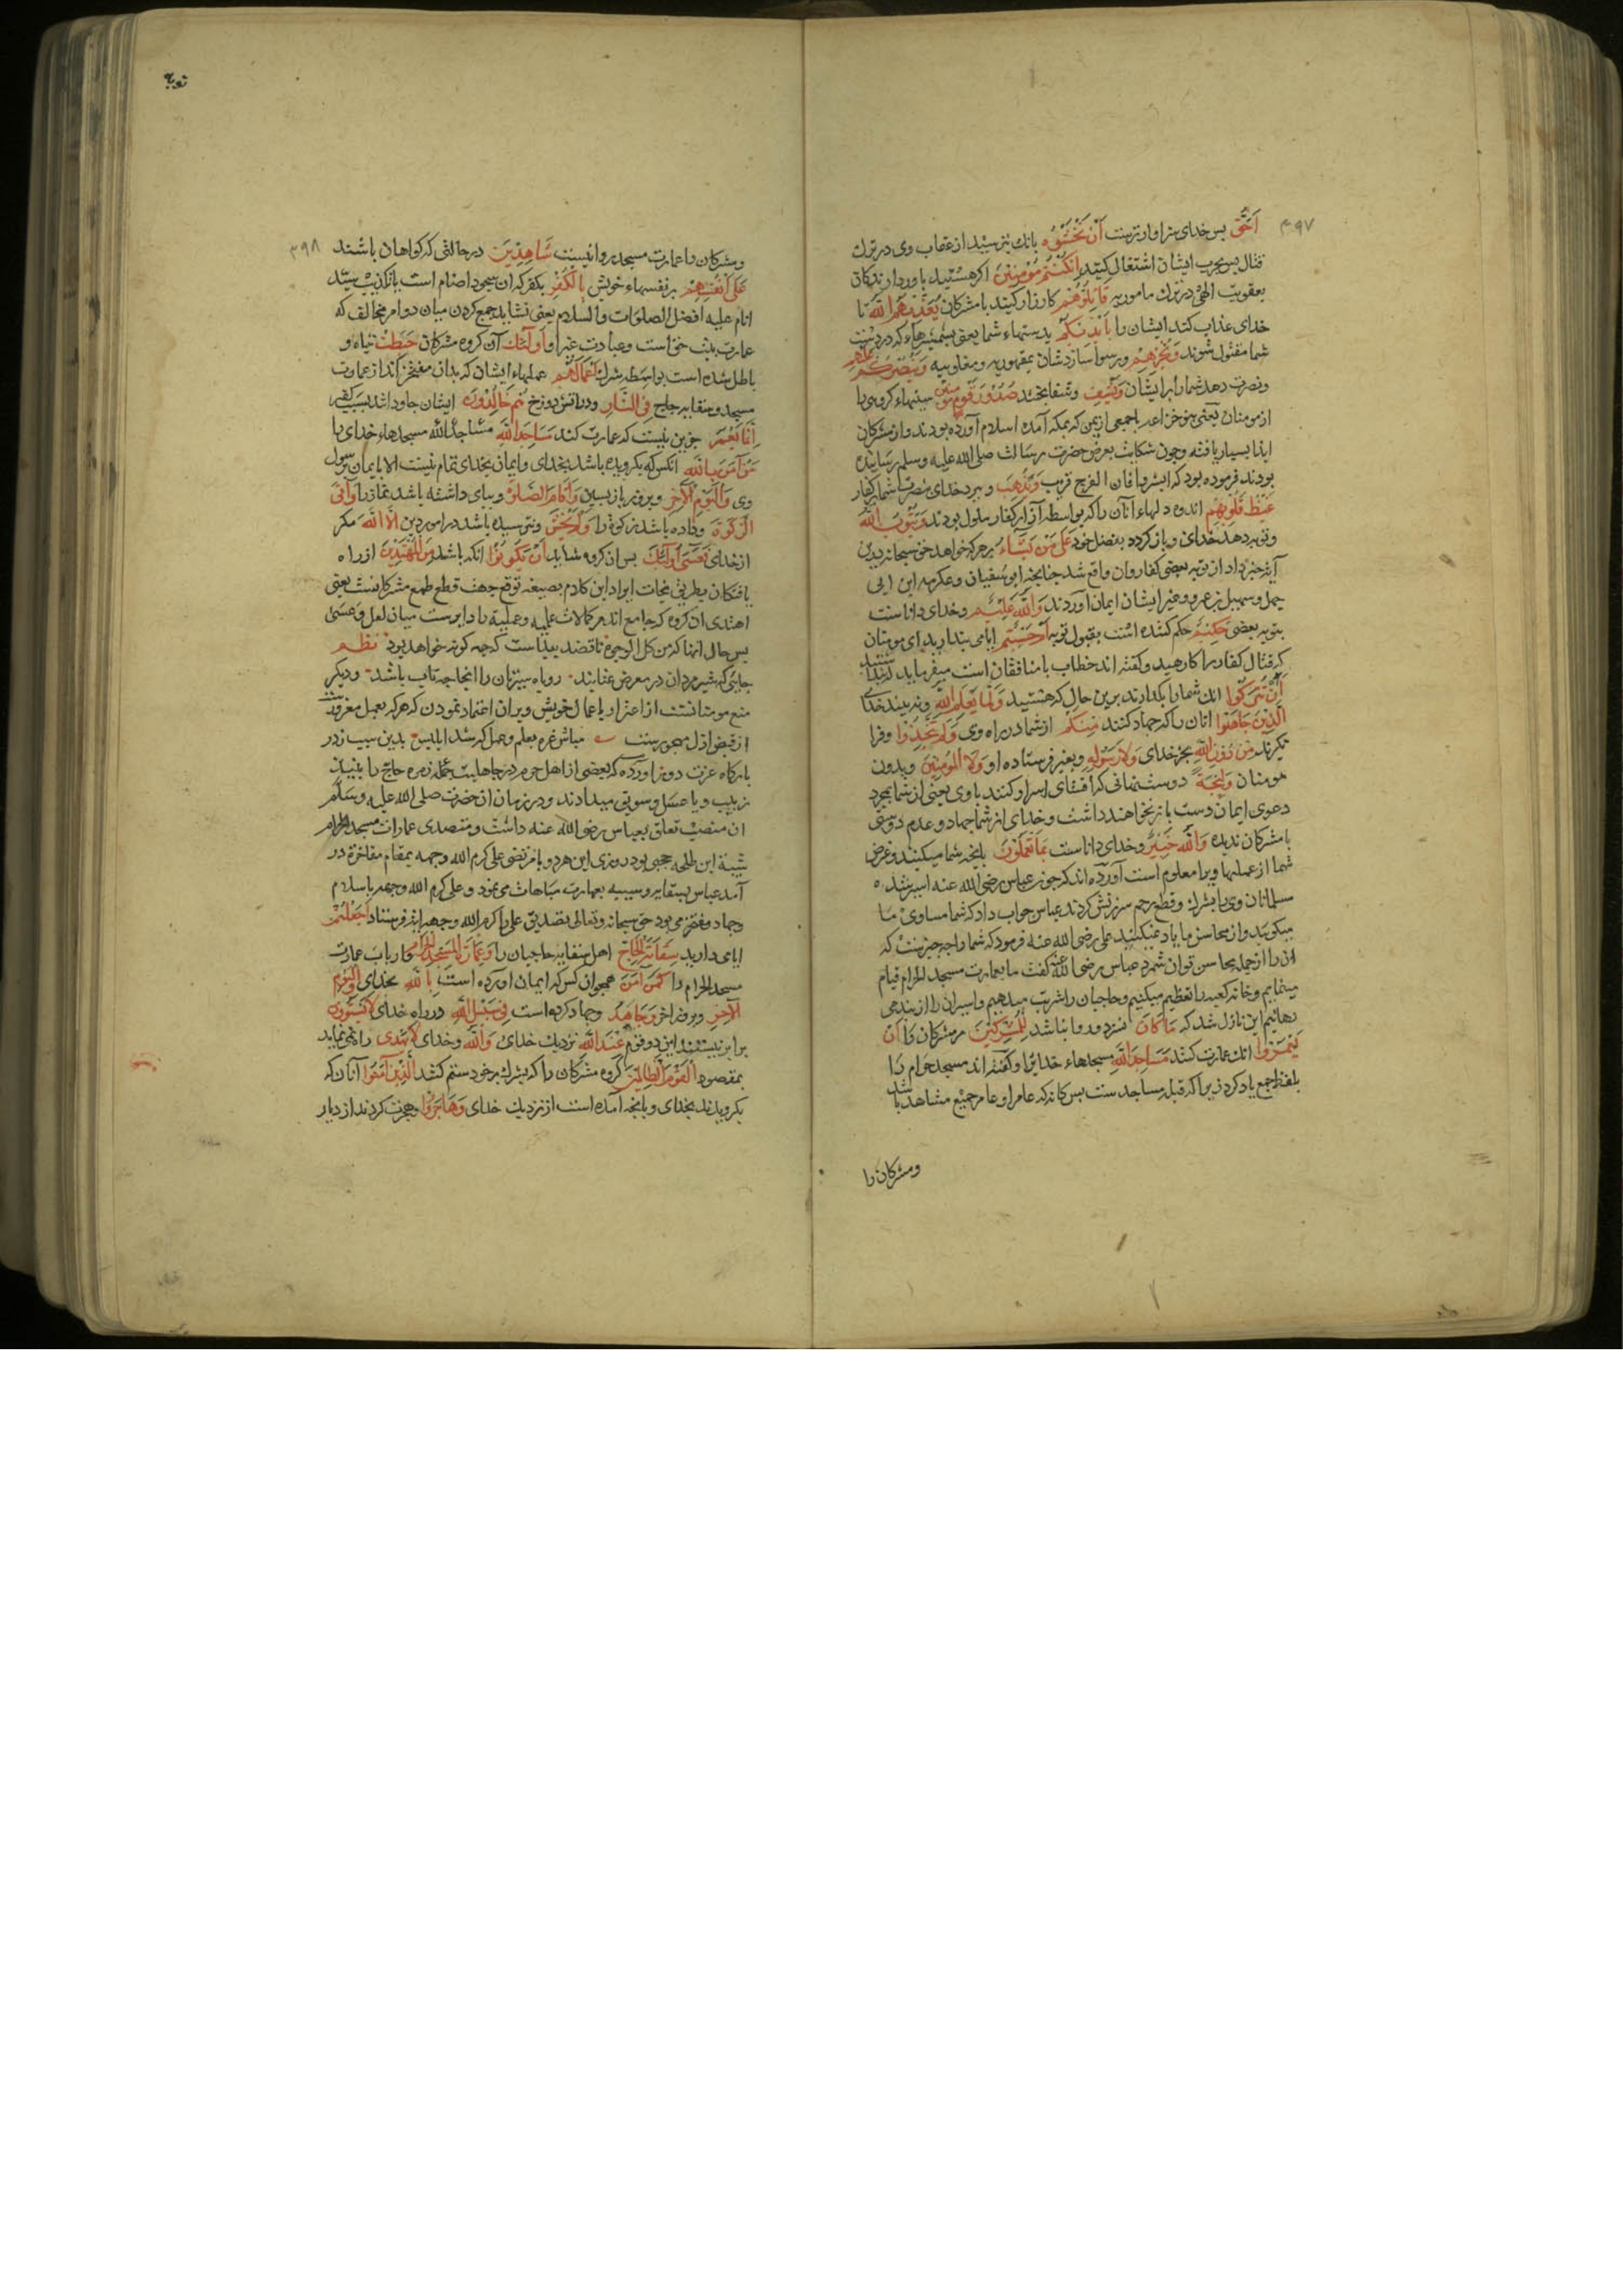 ۳۹۷
اَحَقُّ پس خدای سزاوارترست اَنْ تَخْشَوْهُ بانک بترسید از عقاب وی در ترک
قتال پس بحرب ایشان اشتغال کنید اِنْ کُنْتُمْ مُؤْمِنِینَ اگر هستید باوردارندکان
بعقوبت الهی در ترک مامور به قَاتِلُوهُمْ کارزار کنید با مشرکان یُعَذِّبْهُمُ اللّٰهُ تا
خدای عذاب کند ایشان را بِاَیْدِیکُمْ بدستهاء شما یعنی بشمشیرهاء که در دست
شما مقتول شوند وَیُخْزِهِمْ ورسوا سازدشان بمقهوریه و مغلوبیه وَیَنْصُرْکُمْ عَلَیْهِمْ
ونصرت دهد شما را بر ایشان وَیَشْفِ وشفا بخشد صُدُورَ قَوْمٍ مُؤْمِنِینَ سینهاء کروهی را
از مومنان یعنی بنو خزاعه یا جمعی از یمن که بمکه آمده اسلام آورده بودند واز مشرکان
ایذا بسیار یافته وچون شکایت بعرض حضرت رسالت صلی الله علیه وسلم رسانیده
بودند فرموده بود که ابشروا فان الفرج قریب وَیُذْهِبْ وببرد خدای بنصرت شما بر کفار
غَیْظَ قُلُوبِهِمْ اندوه دلهاء آنان را که بواسطه آزار کفار ملول بودند وَیَتُوبُ اللّٰهُ
وتوبه دهد خدای وبازکردد بفضل خود عَلَی مَنْ یَشَاءُ بر هر که خواهد حق سبحانه بدین
آیه خبر داد از توبه بعضی کفار وان واقع شد چنانچه ابوسفیان وعکرمه ابن ابی
جهل وسهیل بن عمرو وغیر ایشان ایمان آوردند وَاللّٰهُ عَلِیْمٌ وخدای داناست
بتوبه بعضی حَکِیْمٌ حکم کننده است بقبول توبه اَمْ حَسِبْتُمْ ایا می پندارید ای مومنان
که قتال کفار را کارهید وکفته اند خطاب با منافقان است میفرماید که پنداشتید
اَنْ تُتْرَکُوا انک شما را بکذارند برین حال که هستید وَلَمَّا یَعْلَمِ اللّٰهُ ونه بیند خدای
الَّذِینَ جَاهَدُوا انان را که جهاد کنند مِنْکُمْ از شما در راه وی وَلَمْ یَتَّخِذُوا وفرا
نکیرند مِنْ دُونِ اللّٰهِ بجز خدای وَلَا رَسُولِهِ وبغیر فرستاده او وَلَا الْمُؤْمِنِینَ وبدون
مومنان وَلِیجَةً دوست نهانی که افشای اسرار کنند با وی یعنی از شما بمجرد
دعوی ایمان دست باز نخواهند داشت وخدای از شما جهاد وعدم دوستی
با مشرکان ندیده وَاللّٰهُ خَبِیْرٌ وخدای داناست بِمَا تَعْمَلُونَ بانچه شما میکنید وغرض
شما از عملها ویرا معلوم است آورده اند که چون عباس رضی الله عنه اسیر شد
مسلمانان وی را بشرک وقطع رحم سرزنش کردند عباس جواب داد که شما مساوی ما
میکویید واز محاسن ما یاد نمیکنید علی رضی الله عنه فرمود که شما را چه چیزست که
ان را از جمله محاسن توان شمرد عباس رضی الله عنه کفت ما بعمارت مسجد الحرام قیام
مینمایم وخانه کعبه را تعظیم میکنیم وحاجیان را شربت میدهیم واسیران را از بند می
رهانیم این نازل شد که مَا کَانَ نسزد وروا نباشد لِلْمُشْرِکِینَ مر مشرکان را اَنْ
یَعْمُرُوا انک عمارت کنند مَسَاجِدَ اللّٰهِ مسجدهاء خدایرا وکفته اند مسجد حرام را
بلفظ جمع یاد کرد زیرا که قبله مساجد ست پس کانه که عامر او عامر جمیع مشاهد باشد
ومشرکان را
توبه
۳۹۸
ومشرکان را عمارت مسجد روا نیست شَاهِدِیْنَ در حالتی که کواهان باشند
عَلَی اَنْفُسِهِمْ بر نفسهاء خویش بِالْکُفْرِ بکفر که ان سجود اصنام است یا تکذیب سید
انام علیه افضل الصلوات والسلام یعنی نشاید جمع کردن میان دو امر مخالف که
عمارت بیت حق است وعبادت غیر او اُولٰئِکَ آن کروه مشرکان حَبِطَتْ تباه و
باطل شده است بواسطه شرک اَعْمَالُهُمْ عملهاء ایشان که بدان مفتخرند از عمارت
مسجد وسقایه حاج وَفِی النَّارِ ودر آتش دوزخ هُمْ خَالِدُونَ ایشان جاودانند بسبب کفر
اِنَّمَا یَعْمُرُ جزین نیست که عمارت کند مَسَاجِدَ اللّٰهِ مساجد الله مسجدهاء خدای را
مَنْ آمَنَ بِاللّٰهِ انکس که بکرویده باشد بخدای وایمان بخدای تمام نیست الا بایمان رسول
وی وَالْیَوْمِ الْآخِرِ وبروز بازپسین وَاَقَامَ الصَّلٰوةَ وبپای داشته باشد نماز را وَآتَی
الزَّکٰوةَ وداده باشد زکوة را وَلَمْ یَخْشَ ونترسیده باشد در امور دین اِلَّا اللّٰهَ مکر
از خدای فَعَسَی اُولٰئِکَ پس ان کروه شاید اَنْ یَکُونُوا انکه باشند مِنَ الْمُهْتَدِینَ از راه
یافتکان بطریق نجات ایراد این کلام بصیغه توقع جهت قطع طمع مشرکانست یعنی
اهتدای ان کروه که جامع اند مر کمالات علمیه وعملیه را دایرست میان لعل وعسی
پس حال انها که من کل الوجوه ناقصند پیداست که چه کونه خواهد بود نظم
جائی که شیرمردان در معرض عتابند روباه سیرتان را انجا چه تاب باشد ودیکر
منع مومنانست از اغترار با عمال خویش وبران اعتماد نمودن که هر که بعمل مغرورست
از فیض ازل مهجورست مباش غره بعلم وعمل که شد ابلیس بدین سبب ز در
بارکاه عزت دور آورده که بعضی از اهل حرم در جاهلیت زمره حاج را نبیذ
زبیب ویا عسل وسویق میدادند ودر زمان ان حضرت صلی الله علیه وسلم
ان منصب تعلق بعباس رضی الله عنه داشت ومتصدی عمارات مسجد الحرام
شیبة ابن طلحه حجبی بود روزی این هردو با مرتضی علی کرم الله وجهه بمقام مفاخرة در
آمد عباس بسقایه وشیبه بعمارت مباهات می نمود وعلی کرم الله وجهه باسلام
وجهاد مفتخر می بود حق سبحانه وتعالی بتصدیق علی کرم الله وجهه آیه فرستاد اَجَعَلْتُمْ
ایا می دارید سِقَایَةَ الْحَاجِّ اهل سقایه حاجیان را وَعِمَارَةَ الْمَسْجِدِ الْحَرَامِ وارباب عمارت
مسجد الحرام را کَمَنْ آمَنَ همچو ان کس که ایمان آورده است بِاللّٰهِ بخدای وَالْیَوْمِ
الْآخِرِ وبروز اخر وَجَاهَدَ وجهاد کرده است فِی سَبِیلِ اللّٰهِ در راه خدای لَا یَسْتَوُونَ
برابر نیستند این دو قوم عِنْدَ اللّٰهِ نزدیک خدای وَاللّٰهُ وخدای لَا یَهْدِی راه نمی نماید
بمقصود الْقَوْمَ الظَّالِمِینَ کروه مشرکان را که بشرک بر خود ستم کنند الَّذِینَ آمَنُوا آنان که
بکرویدند بخدای وبانچه آمده است از نزدیک خدای وَهَاجَرُوا وهجرت کردند از دیار